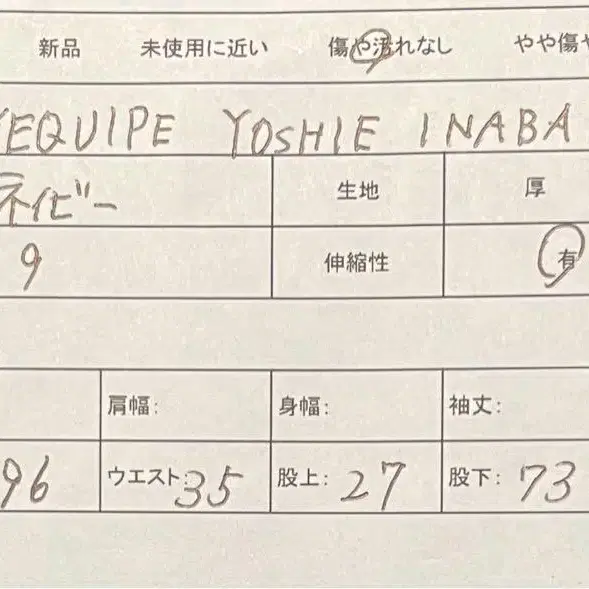 新品 未使用に近い 傷や汚れなし やや傷や
L'EQUIPE YOSHIE INABA
ネイビー 生地 厚
9 伸縮性 有
肩幅: 身幅: 袖丈:
96 ウエスト:35 股上:27 股下:73